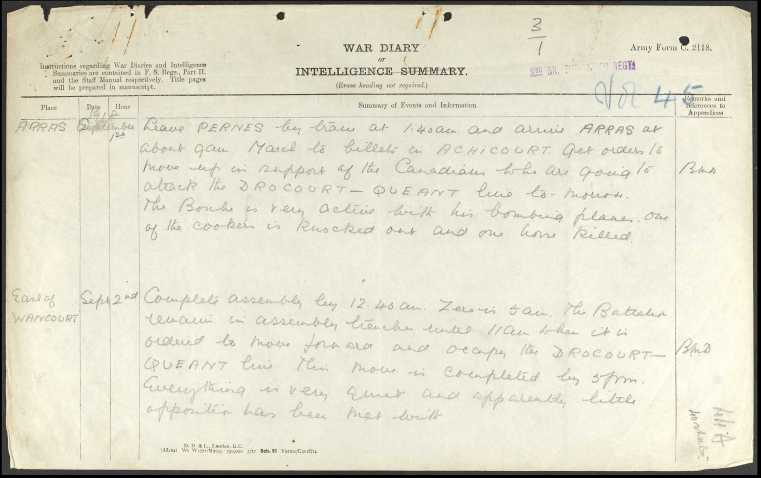 3
1
WAR DIARY
or
INTELLIGENCE SUMMARY.
(Erase heading not required.)
Army Form C. 2118.
Instructions regarding War Diaries and Intelligence
Summaries are contained in F. S. Regs., Part II.
and the Staff Manual respectively. Title pages
will be prepared in manuscript.
Vol 45
Place Date Hour Summary of Events and Information Remarks and references to Appendices
ARRAS September 1st Leave PERNES by train at 1.40am and arrive ARRAS at
about 9am. March to billets in ACHICOURT. Get orders to
move up in support of the Canadians who are going to
attack the DROCOURT – QUEANT line to-morrow.
The Bosche is very active with his bombing planes. One
of the cookers is knocked out and one horse killed.
East of WANCOURT Sept 2nd Complete assembly by 12.40am. Zero is 5am. The Battalion
remain in assembly trenches until 11am when it is
ordered to move forward and occupy the DROCOURT –
QUEANT line this move is completed by 5pm.
Everything is very quiet and apparently little
opposition has been met with